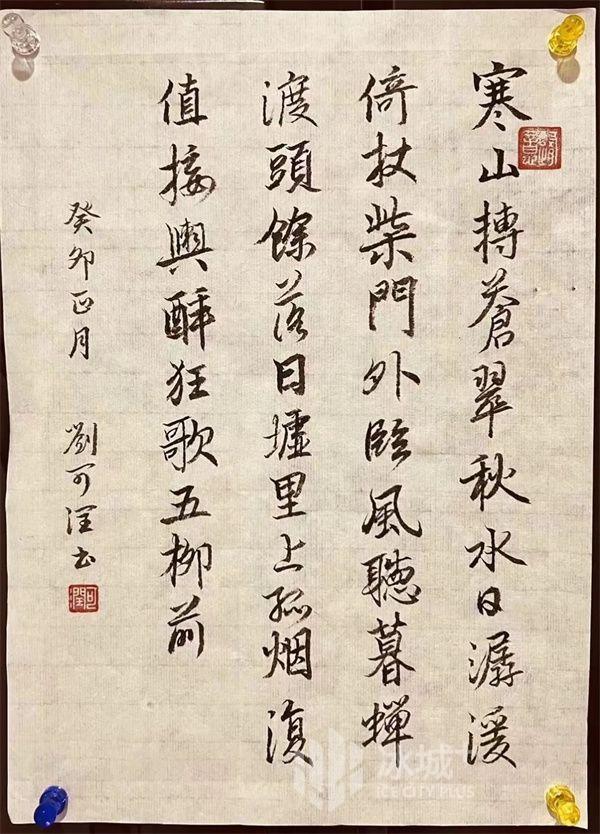 寒山轉蒼翠秋水日潺湲
倚杖柴門外臨風聴暮蟬
渡頭餘落日墟里上孤烟復
值接輿酔狂歌五柳前
癸卯正月 劉可潤书
可潤
冰城+
ICE CITY PLUS